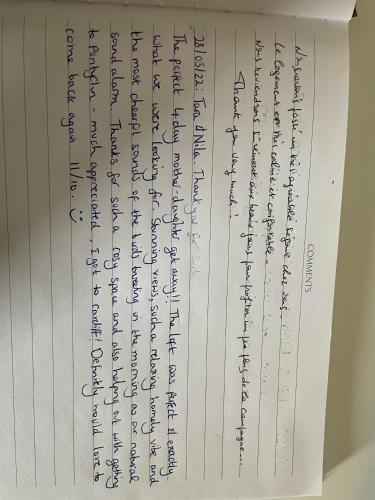 COMMENTS
Nous avons passé un très agréable séjour chez vous.
Le logement est très calme et confortable.
Nous reviendrons sûrement aux beaux jours pour profiter un peu plus de la campagne...
Thank you very much!
28/03/22: Tara & Nila. Thank you for
The perfect 4 day mother-daughter get away!! The loft was perfect & exactly
what we were looking for. Stunning views, such a relaxing homely vibe and
the most cheerful sounds of the birds tweeting in the morning as our natural
sound alarm. Thanks for such a cosy space and also helping out with getting
to Pontyclun - much appreciated, I got to Cardiff! Definitely would love to
come back again. 11/10. :)